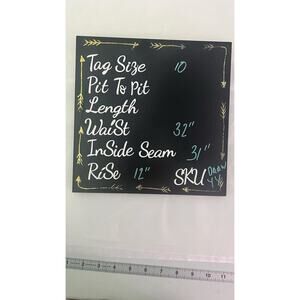 Tag Size 10
Pit To Pit
Length
WaiSt 32"
InSide Seam 31"
RiSe 12" SKU